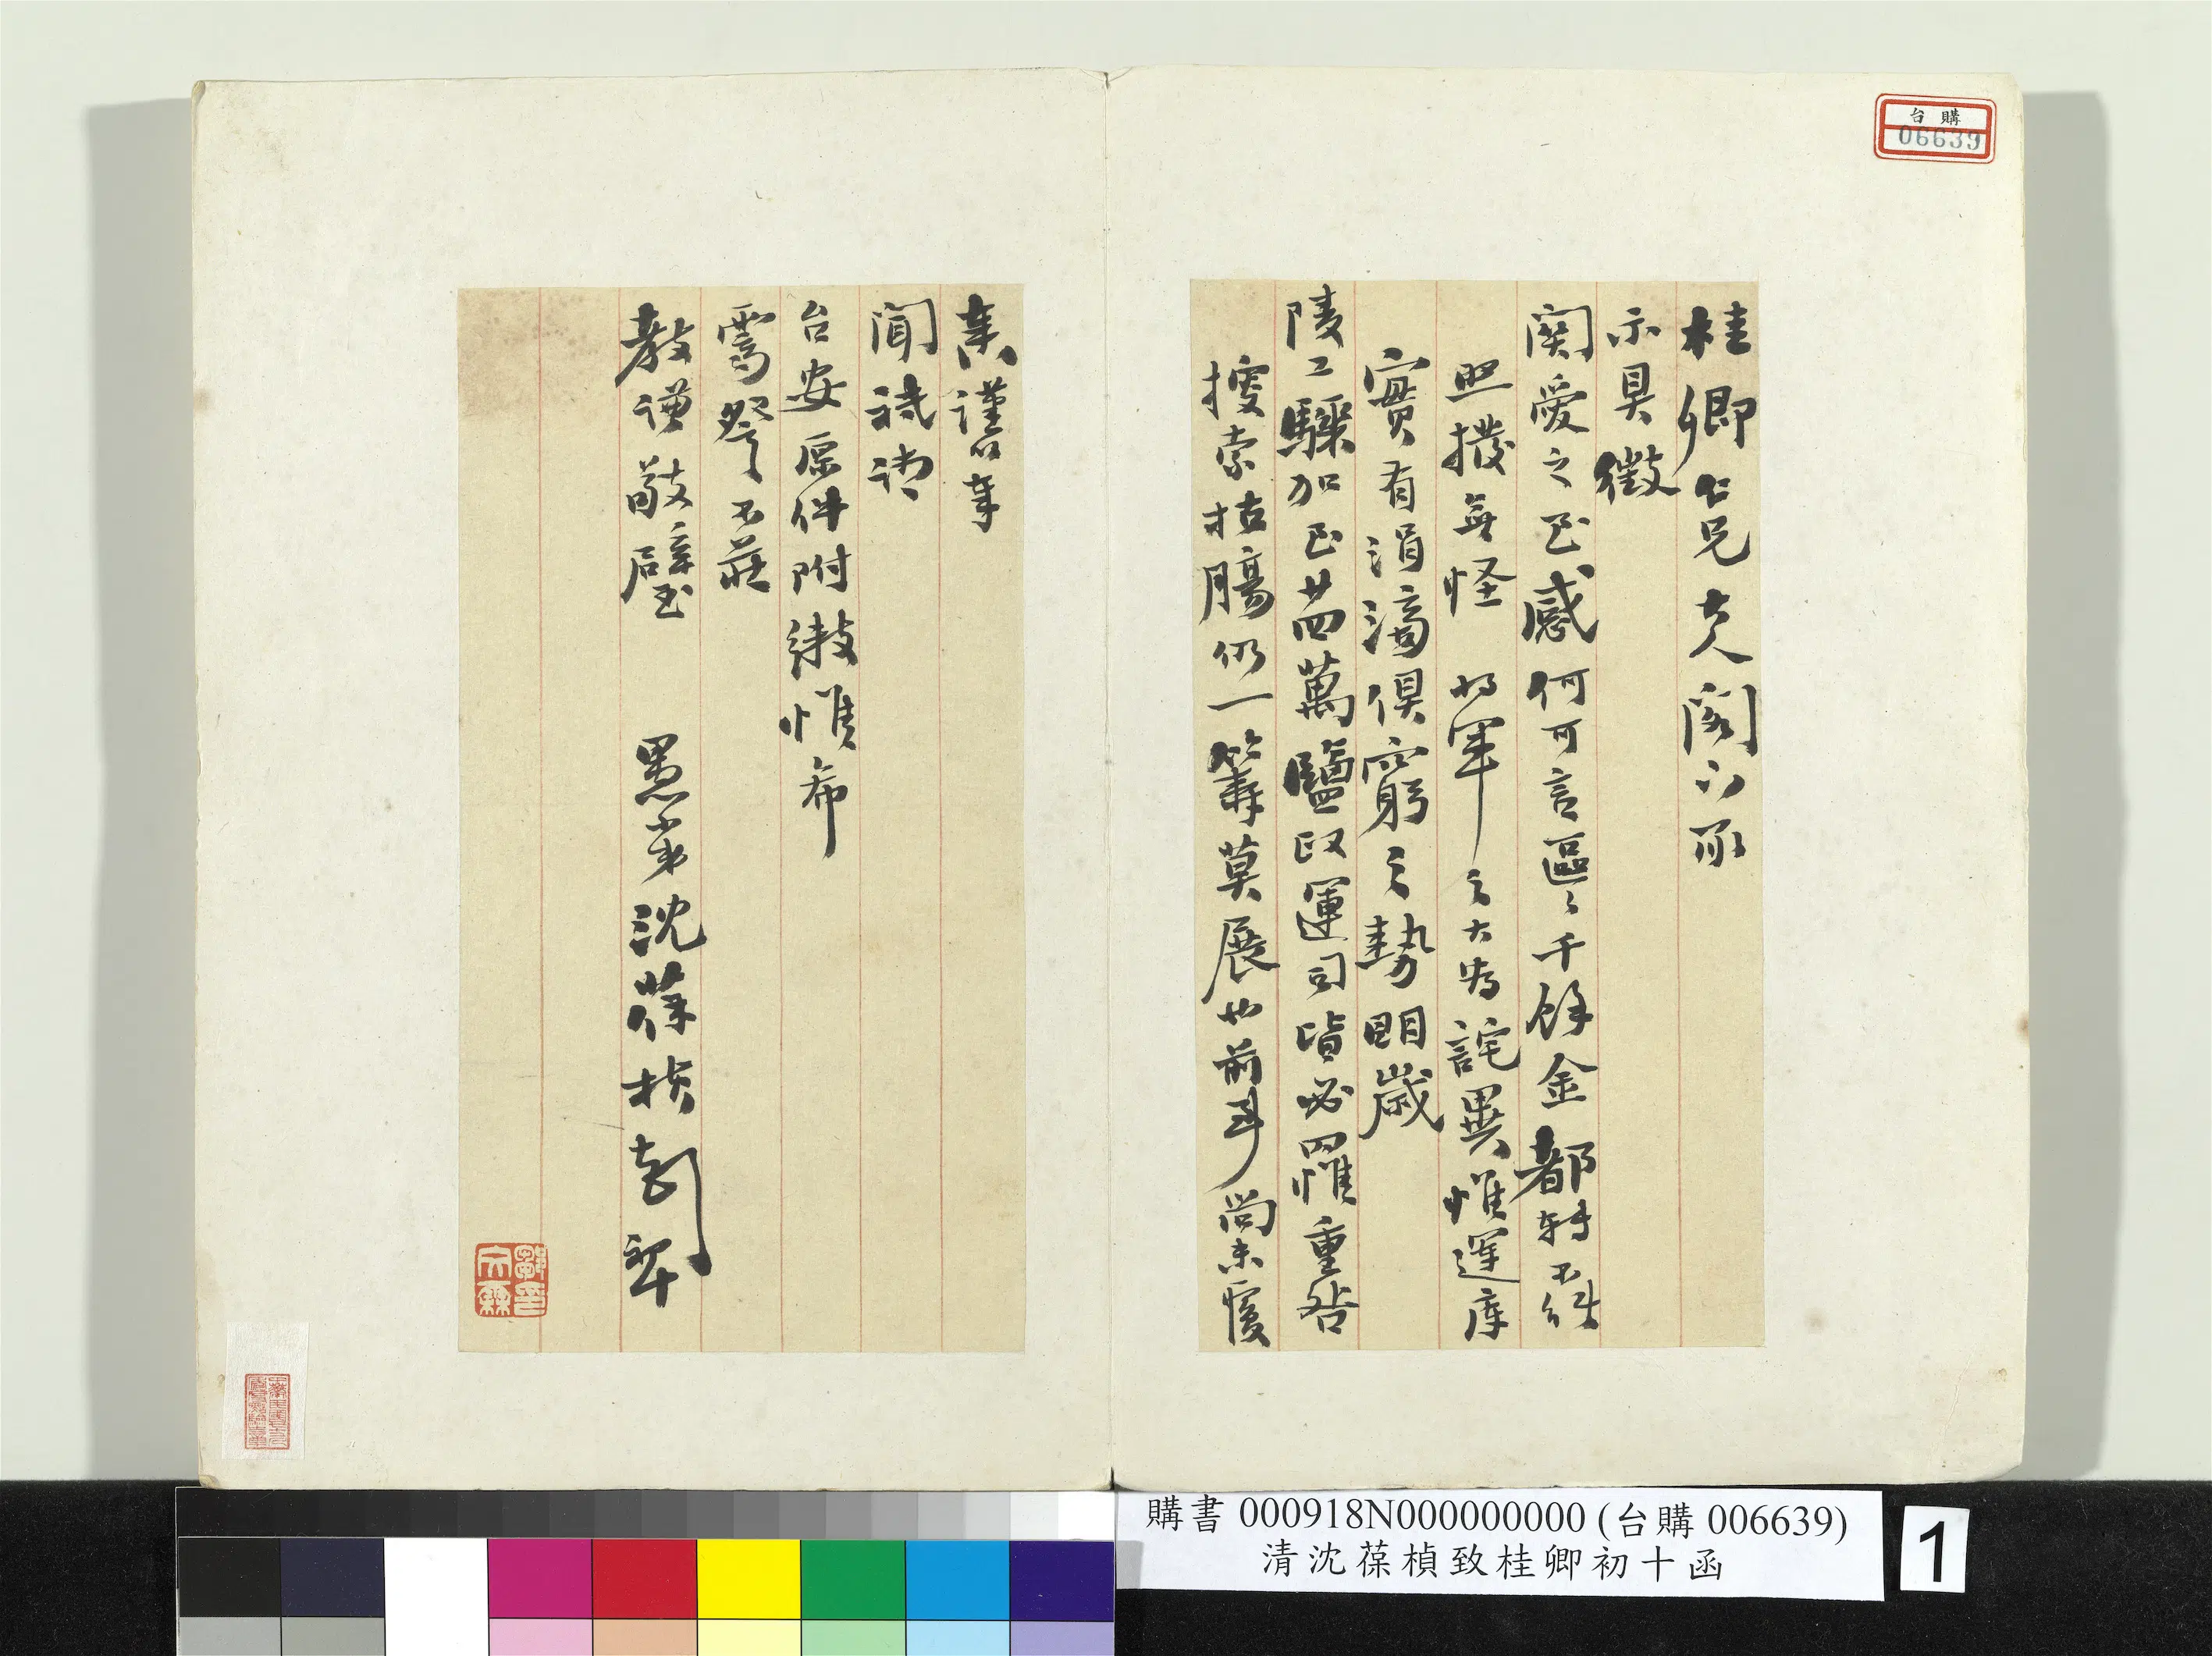 台購
06639
桂卿仁兄大人閣下承
示具徵
関愛之至感何可言區〻千餘金都轉不能
照撥無怪 將軍之大為詫異惟運庫
實有涓滴俱窮之勢明歲
陵工驟加至廿四萬鹽政運司皆必罹重咎
搜索枯腸仍一籌莫展也前事尚未覆
奏謹以奉
聞祗請
台安原件附繳惟希
詧不莊
教謙敬璧 愚弟沈葆楨頓
購書 000918N000000000 (台購 006639)
清沈葆楨致桂卿初十函
1